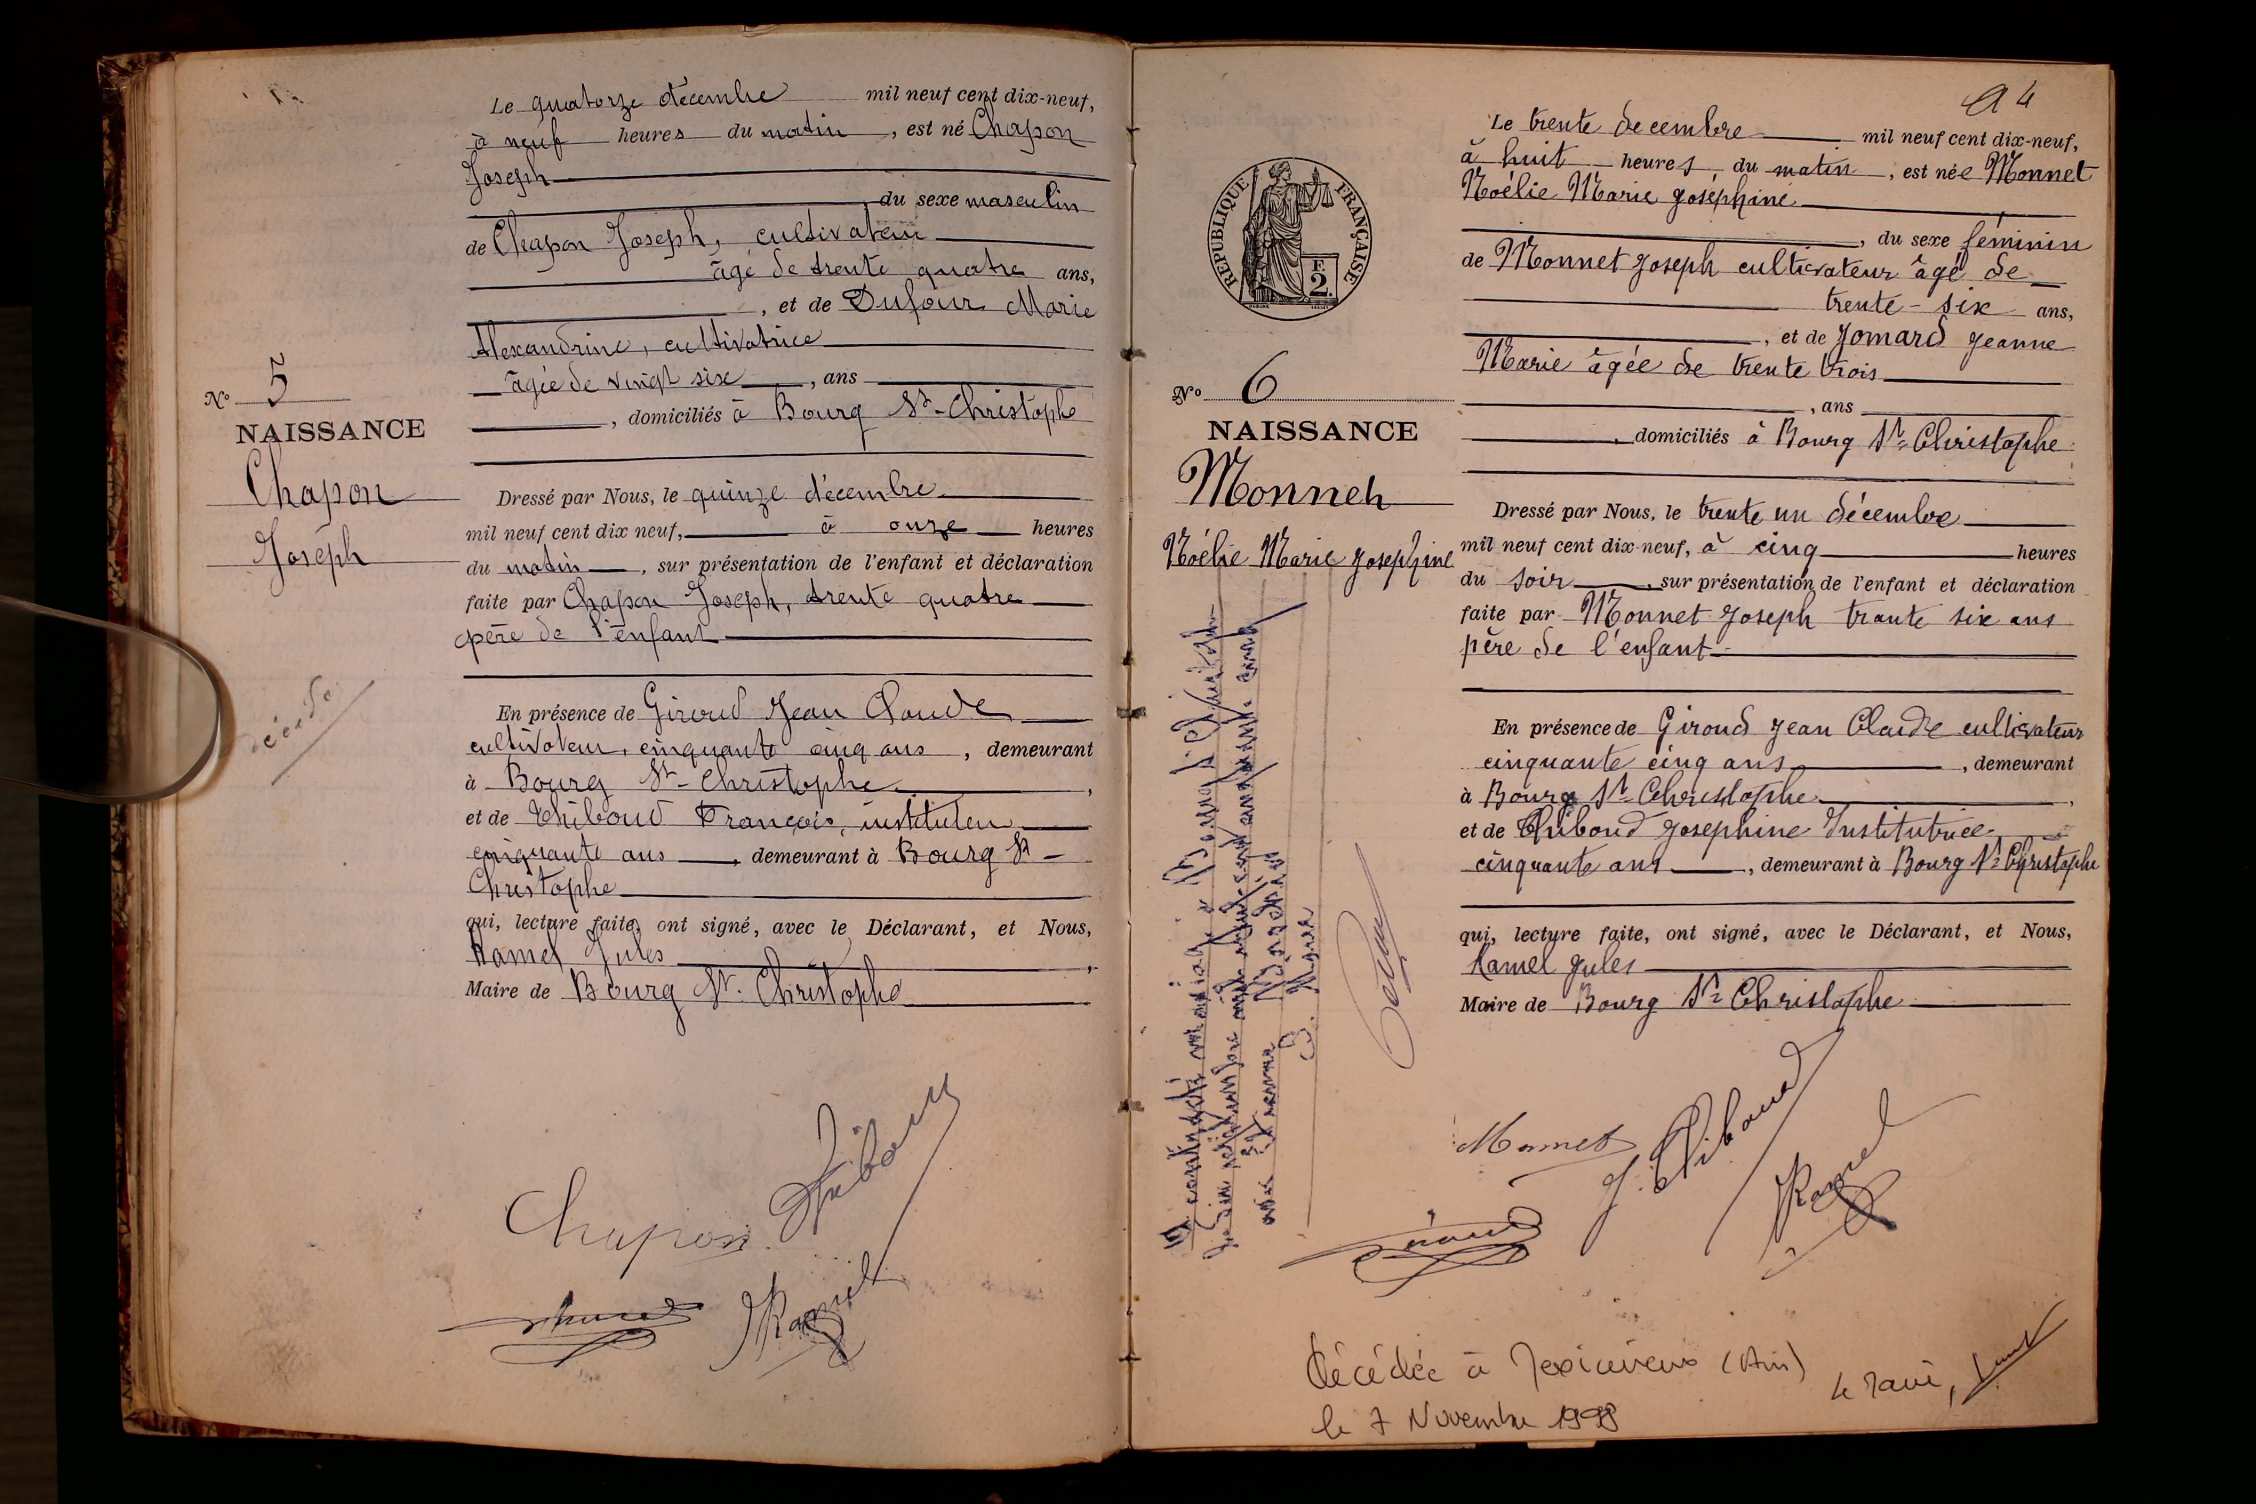 Le quatorze décembre mil neuf cent dix-neuf,
à neuf heures du matin, est né Chapon
Joseph
du sexe masculin
de Chapon Joseph, cultivateur
âgé de trente quatre ans,
, et de Dufour Marie
Alexandrine, cultivatrice
âgée de vingt six, ans
, domiciliés à Bourg St-Christophe
No 5
NAISSANCE
Chapon
Joseph
Dressé par Nous, le quinze décembre
mil neuf cent dix neuf, à onze heures
du matin, sur présentation de l'enfant et déclaration
faite par Chapon Joseph, trente quatre
père de l'enfant
décédé
En présence de Giroud Jean Claude
cultivateur, cinquante cinq ans, demeurant
à Bourg St-Christophe,
et de Thiboud François, instituteur
cinquante ans, demeurant à Bourg St-
Christophe
qui, lecture faite, ont signé, avec le Déclarant, et Nous,
Hamel Jules,
Maire de Bourg St. Christophe
Chapon
Thiboud
a 4
RÉPUBLIQUE FRANÇAISE
F.
2.
Le trente decembre mil neuf cent dix-neuf,
à huit heures, du matin, est née Monnet
Noélie Marie Joséphine
, du sexe féminin
de Monnet Joseph cultivateur âgé de
trente-six ans,
, et de Jomard Jeanne
Marie âgée de trente trois
, ans
, domiciliés à Bourg St-Christophe
No 6
NAISSANCE
Monnet
Noélie Marie Josephine
Dressé par Nous, le trente un décembre
mil neuf cent dix-neuf, à cinq heures
du soir, sur présentation de l'enfant et déclaration
faite par Monnet Joseph trente six ans
père de l'enfant
En présence de Giroud Jean Claude cultivateur
cinquante cinq ans, demeurant
à Bourg St-Christophe,
et de Thiboud Josephine Institutrice
cinquante ans, demeurant à Bourg St-Christophe
qui, lecture faite, ont signé, avec le Déclarant, et Nous,
Hamel Jules
Maire de Bourg St-Christophe
A contracté mariage à Bourg St Christophe
avec
Monnet
J. Thiboud
Décédée à Meximieux (Ain)
le 7 Novembre 1998
le Maire,